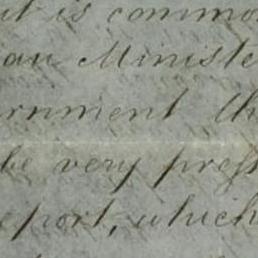 it is common
an Ministe
ernment th
be very press
report, which